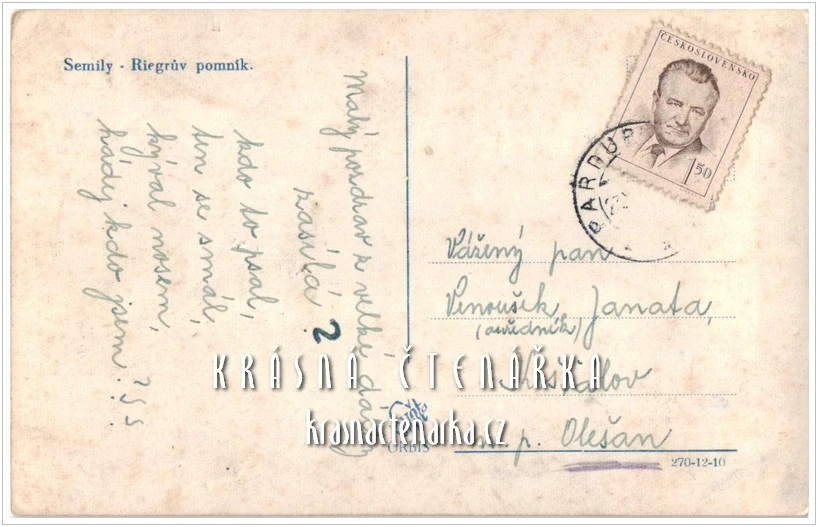 Semily · Riegrův pomník.
Malý pozdrav z velké dálky
zasílá ?
kdo to psal,
ten se smál,
kýval nosem,
hádej kdo jsem? ??
ČESKOSLOVENSKO
1,50
PARDUB
Vážený pan
Venoušek Janata,
(ouředník)
Košťálov
p. Olešan
ORBIS
270-12-10
KRÁSNÁ ČTENÁŘKA
krasnactenarka.cz